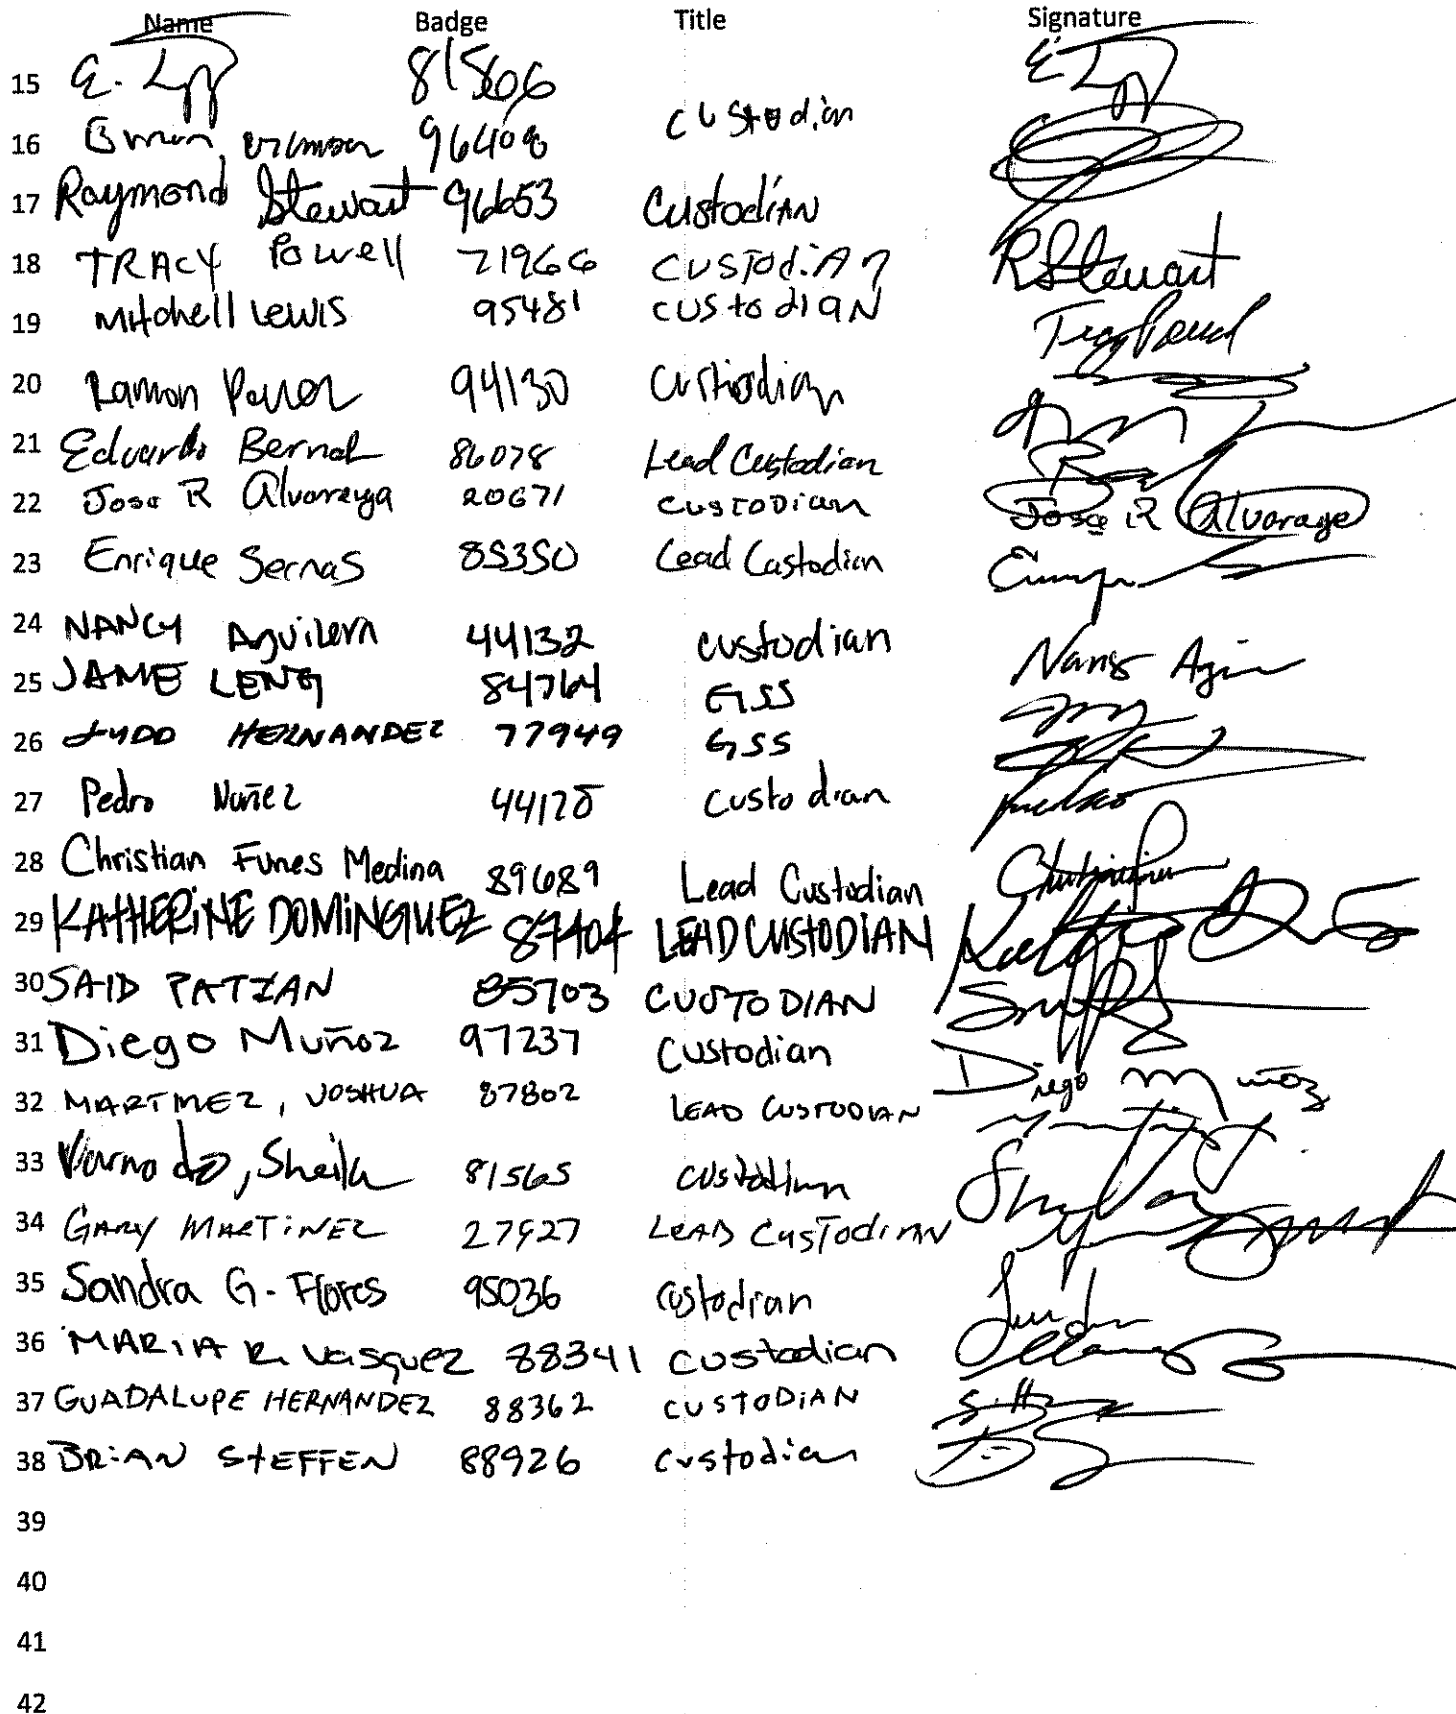 Name Badge Title Signature
15 E. 81506
16 96408 custodian
17 Raymond Stewart 96653 Custodian R Stewart
18 TRACY Powell 71966 CUSTODiAn
19 Mitchell Lewis 95481 custodiaN
20 Ramon 94130 Custiodian
21 Eduardo Bernal 86078 Lead Custodian
22 Jose R Alvarenga 20671 CUSTODian Jose R
23 Enrique Sernas 85350 Lead Castodian
24 NANCY Aguilera 44132 custodian
25 JAME LENG 84764 GSS
26 HERNANDEZ 77949 GSS
27 Pedro Nuñez custodian
28 Christian Funes Medina 89689 Lead Custodian
29 KATHERiNE DOMiNGUEZ 87404 LEAD CUSTODIAN
30 SAID PATZAN 85703 CUSTODIAN
31 Diego Muñoz 97237 Custodian Diego Muñoz
32 MARTINEZ, JOSHUA 87802 LEAD CUSTODIAN
33 Varnado, Sheila 81565 custodian
34 GARY MARTiNEZ 27927 LEAD CUSTODIAN
35 Sandra G. Flores 95036 custodian
36 MARIA R. Vasquez 88341 custodian
37 GUADALUPE HERNANDEZ 88362 CUSTODiAN
38 BRiAN STEFFEN 88926 custodian
39
40
41
42